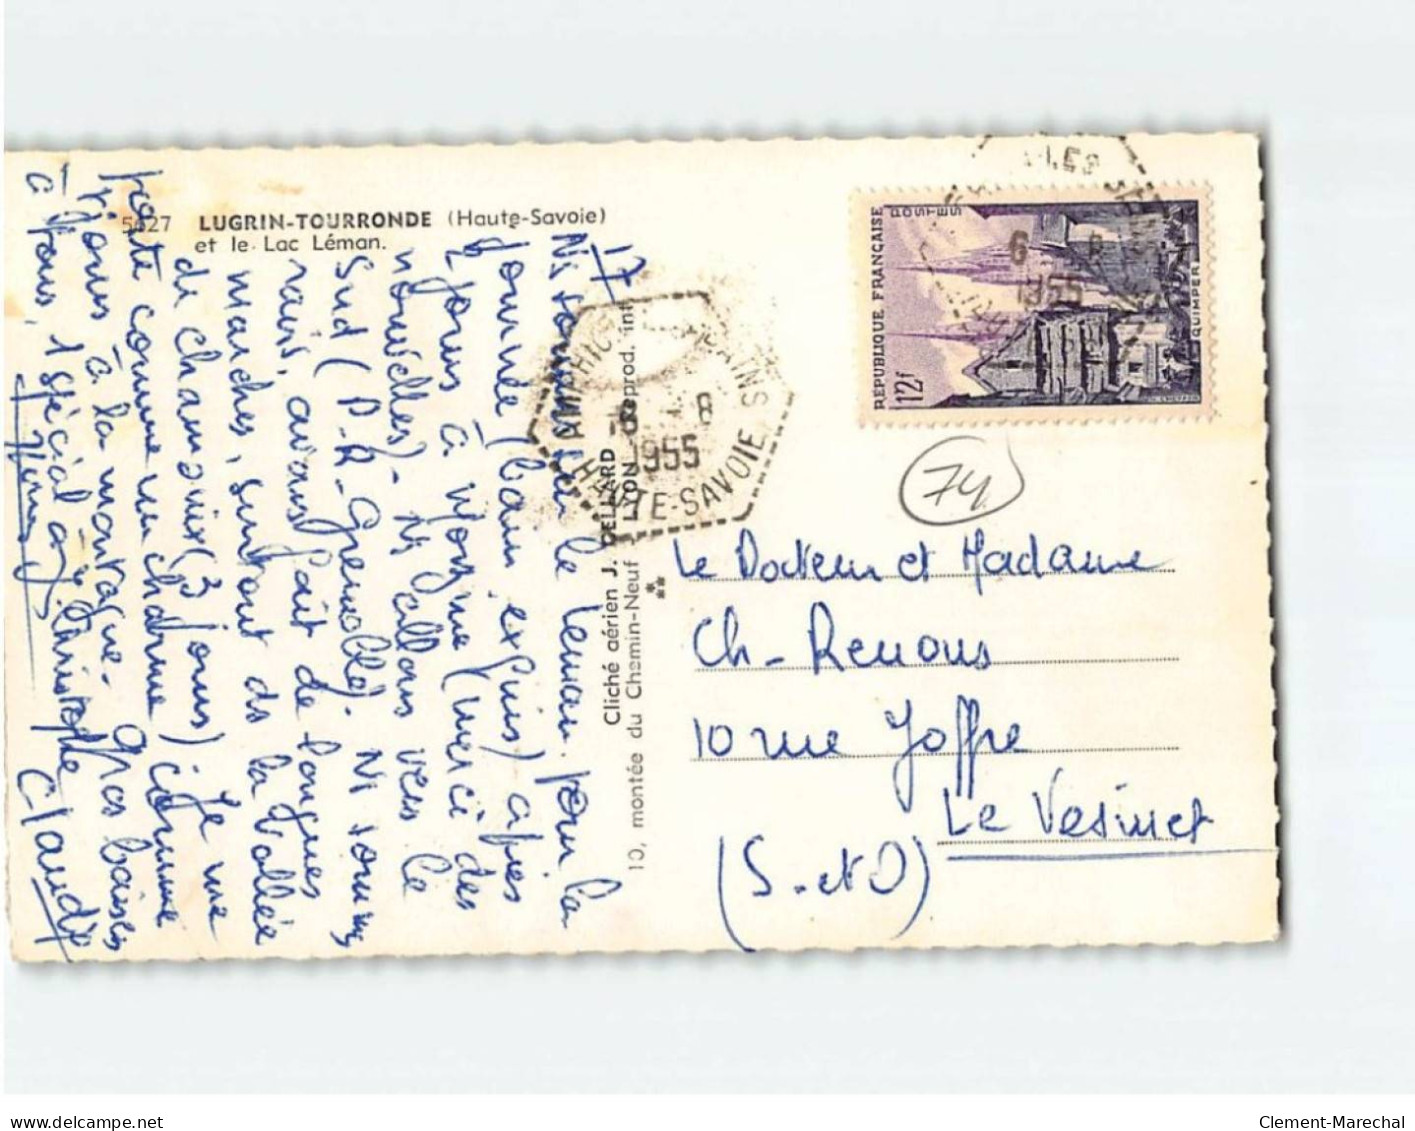 5627 LUGRIN-TOURRONDE (Haute-Savoie)
et le Lac Léman.
17
Ns sommes sur le Léman pour la
journée (bain, exquis) après
2 jours à Morzine (merci des
nouvelles). Ns allons vers le
Sud (P.R. Grenoble). Ns sommes
ravis, avons fait de longues
marches, surtout ds la Vallée
de Chamonix (3 jours) ; Je me
porte comme un charme comme
tjours à la montagne. Gros baisers
à tous, 1 spécial à Christophe
Claudie
Cliché aérien J. CELLARD
10, montée du Chemin-Neuf LYON Reprod. int.
HAUTE-SAVOIE
6 8
1955
RÉPUBLIQUE FRANÇAISE
POSTES
12f
QUIMPER
6 8
1955
74
Le Docteur et Madame
Ch. Renous
10 rue Joffre
Le Vésinet
(S. et O)
delcampe.net
Clement-Marechal